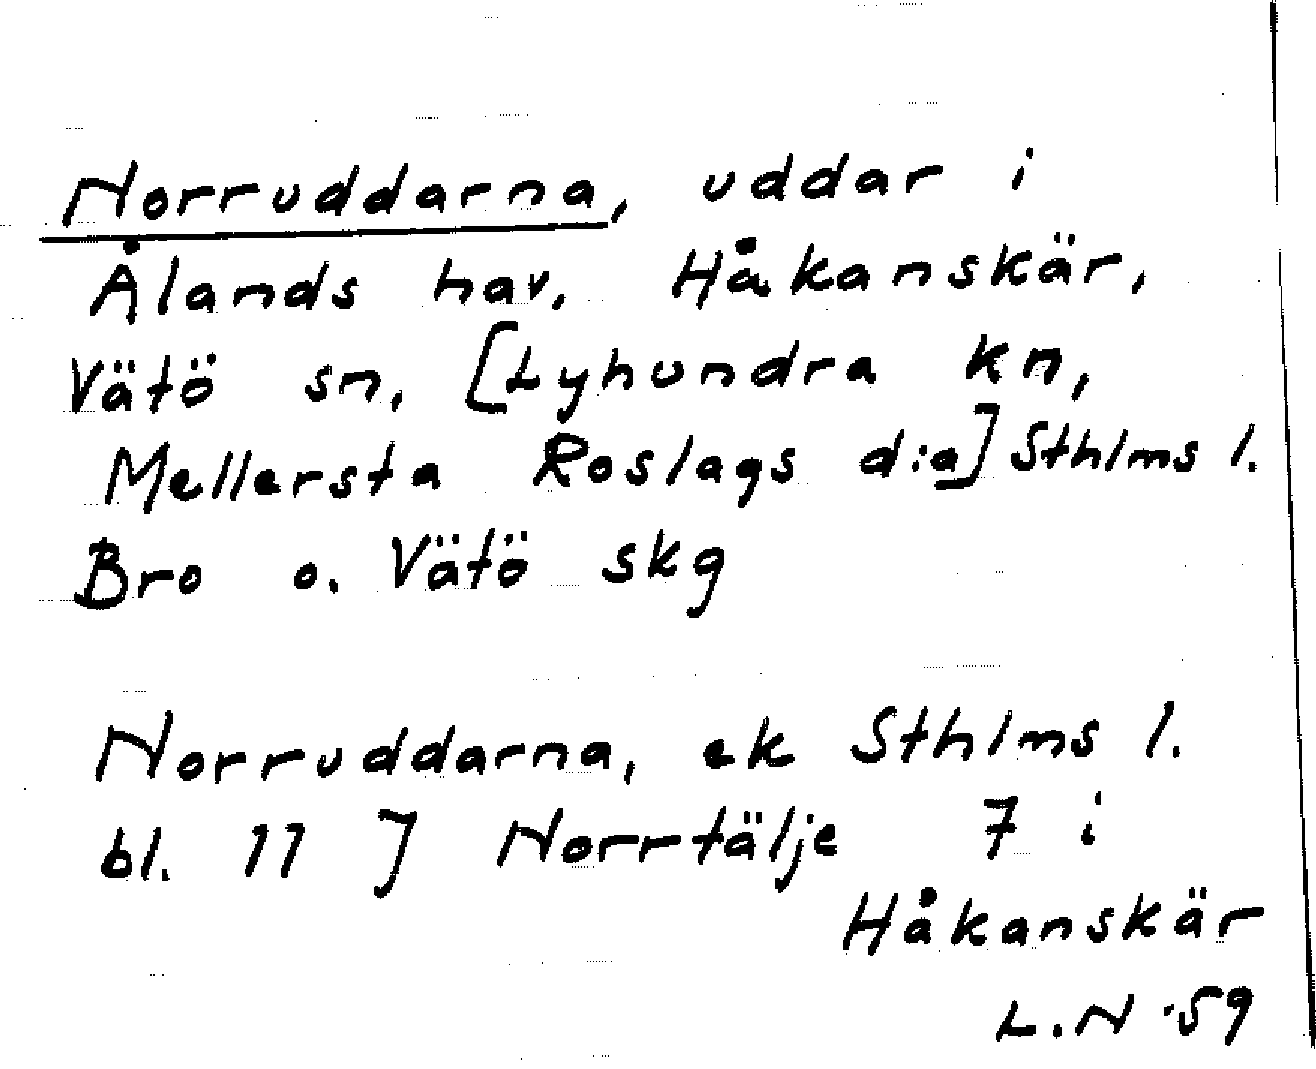 Norruddarna, uddar i
Ålands hav, Håkanskär,
Vätö sn, [Lyhundra kn,
Mellersta Roslags d:a] Sthlms l.
Bro o. Vätö skg
Norruddarna, ek Sthlms l.
bl. 11 J Norrtälje 7 i
Håkanskär
L.N ·59